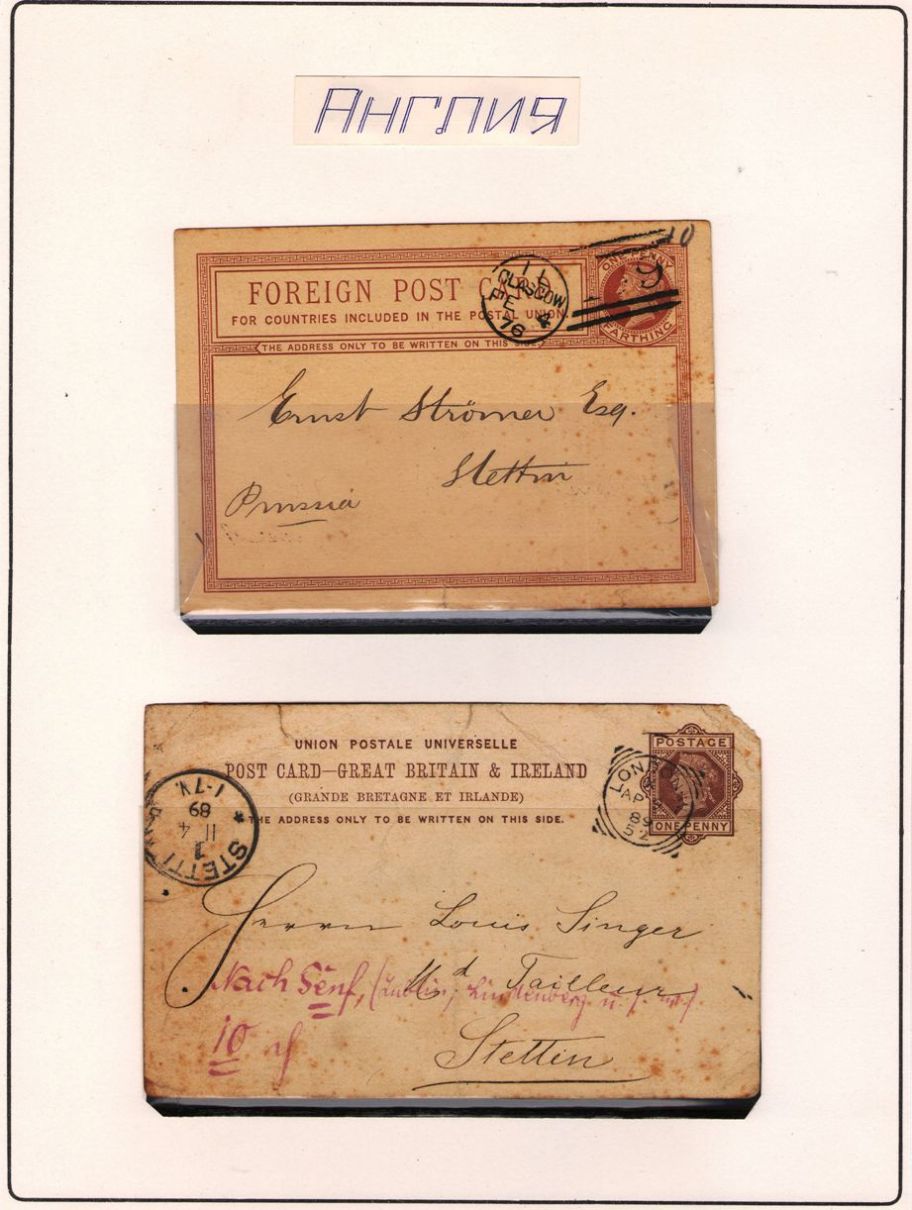 Англия
FOREIGN POST CARD
FOR COUNTRIES INCLUDED IN THE POSTAL UNION
THE ADDRESS ONLY TO BE WRITTEN ON THIS SIDE.
GLASGOW
FE 4
76
10
9
ONE PENNY
FARTHING
Ernst Strömer Esq.
Stettin
Prussia
UNION POSTALE UNIVERSELLE
POST CARD—GREAT BRITAIN & IRELAND
(GRANDE BRETAGNE ET IRLANDE)
THE ADDRESS ONLY TO BE WRITTEN ON THIS SIDE.
LONDON
AP
89
52
POSTAGE
ONE PENNY
STETTIN
1
11 4
89
1-7N.
Herrn Louis Singer
Md Tailleur
Nach Senf, Lindenberg u. s. w.
Stettin
10